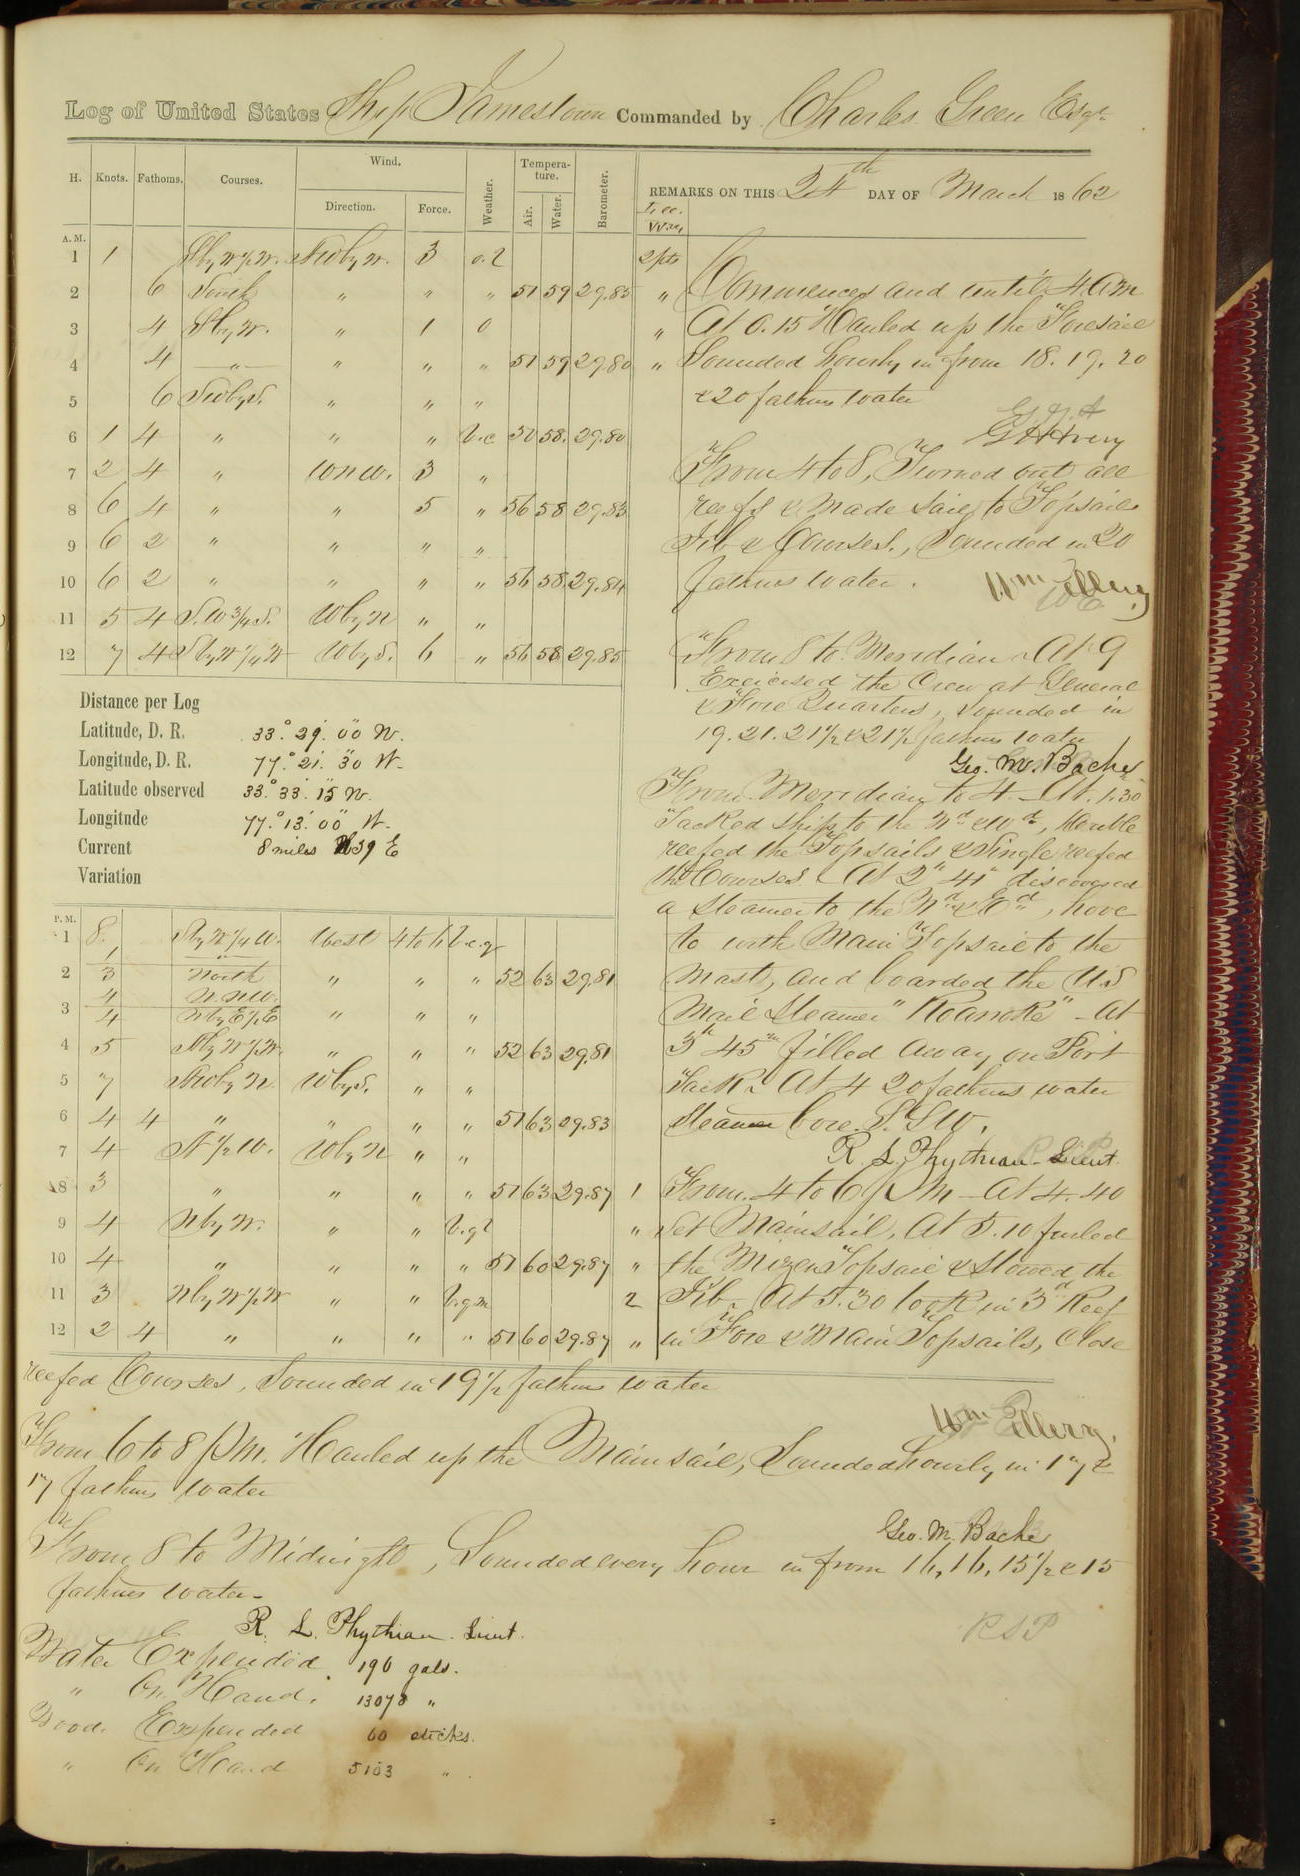 Log of United States Ship Jamestown Commanded by Charles Green Esqr
H. Knots. Fathoms. Courses. Wind. Direction. Force. Weather. Temperature. Air. Water. Barometer. REMARKS ON THIS 24th DAY OF March 1862
Lee Way
A.M.
1 1 NWbyW. 3 2pts
2 6 South " " " 51 59 29.85 "
3 4 SbyW. " 1 o "
4 4 " " " " 51 59 29.80 "
5 6 SWbyS. " " "
6 1 4 " " " b.c 50 58. 29.80
7 2 4 " WNW. 3 "
8 6 4 " " 5 " 56 58 29.83
9 6 2 " " " "
10 6 2 " " " " 56 58. 29.84
11 5 4 S.W 3/4 S. WbyN " "
12 7 4 SbyW 1/4 W WbyS. 6 " 56 58 29.85
Commences and until 4 AM
At 0.15 Hauled up the Foresail
Sounded hourly in from 18. 19. 20
& 20 fathms water
From 4 to 8, Turned out all
reefs & made sail to Topsails
Jib & Courses., Sounded in 20
fathms water.
Wm Ellery
From 8 to Meridian - At 9
Exercised the Crew at General
& Fire Quarters, Sounded in
19. 21. 21 1/2 & 21 1/2 fathms water
Geo. M. Bache
Distance per Log
Latitude, D. R. 33° 29' 00" N.
Longitude, D. R. 77° 21' 30" W.
Latitude observed 33° 33' 15" N.
Longitude 77° 13' 00" W.
Current 8 miles N 39 E
Variation
P.M.
1 8. NbyW 1/4 W. West 4 to 6 b.c.q
1 "
2 3 North " " " 52 63 29.81
4 N.NW.
3 4 NbyE 1/2 E " " "
4 5 " " " 52 63 29.81
5 7 WbyS. " "
6 4 4 " " " " 51 63 29.83
7 4 WbyN " "
8 3 " " " " 51 63 29.87 1
9 4 NbyW. " " "
10 4 " " " " 51 60 29.87 "
11 3 NbyW 1/2 W " " b.q.m 2
12 2 4 " " " " 51 60 29.87 "
From Meridian to 4 - At 1.30
Tacked ship to the Nd & Wd, double
reefed the Topsails & Single reefed
the Courses. At 2h 41m discovered
a Steamer to the Nd & Ed, hove
to with Main Topsail to the
mast, and boarded the U.S
Mail Steamer "Roanoke" - At
3h 45m filled away on Port
Tack. At 4 20 fathms water
Steamer bore. S.SW.
R. L. Phythian Lieut
From. 4 to 6 PM - At 4.40
set Mainsail, At 5.10 furled
the Mizen Topsail & Stowed the
Jib. At 5.30 took in 3d Reef
in Fore & Main Topsails, Close
reefed Courses, Sounded in 19 1/2 fathms water
Wm Ellery.
From 6 to 8 P.M. Hauled up the Mainsail, Sounded hourly in 17 &
17 fathms water
Geo. M. Bache
From 8 to Midnight, Sounded every hour in from 16, 16, 15 1/2 & 15
fathms water.
R. L. Phythian. Lieut.
RLP
Water Expended 190 gals.
" On Hand. 13078 "
Wood. Expended 60 sticks.
" On Hand 5103 "